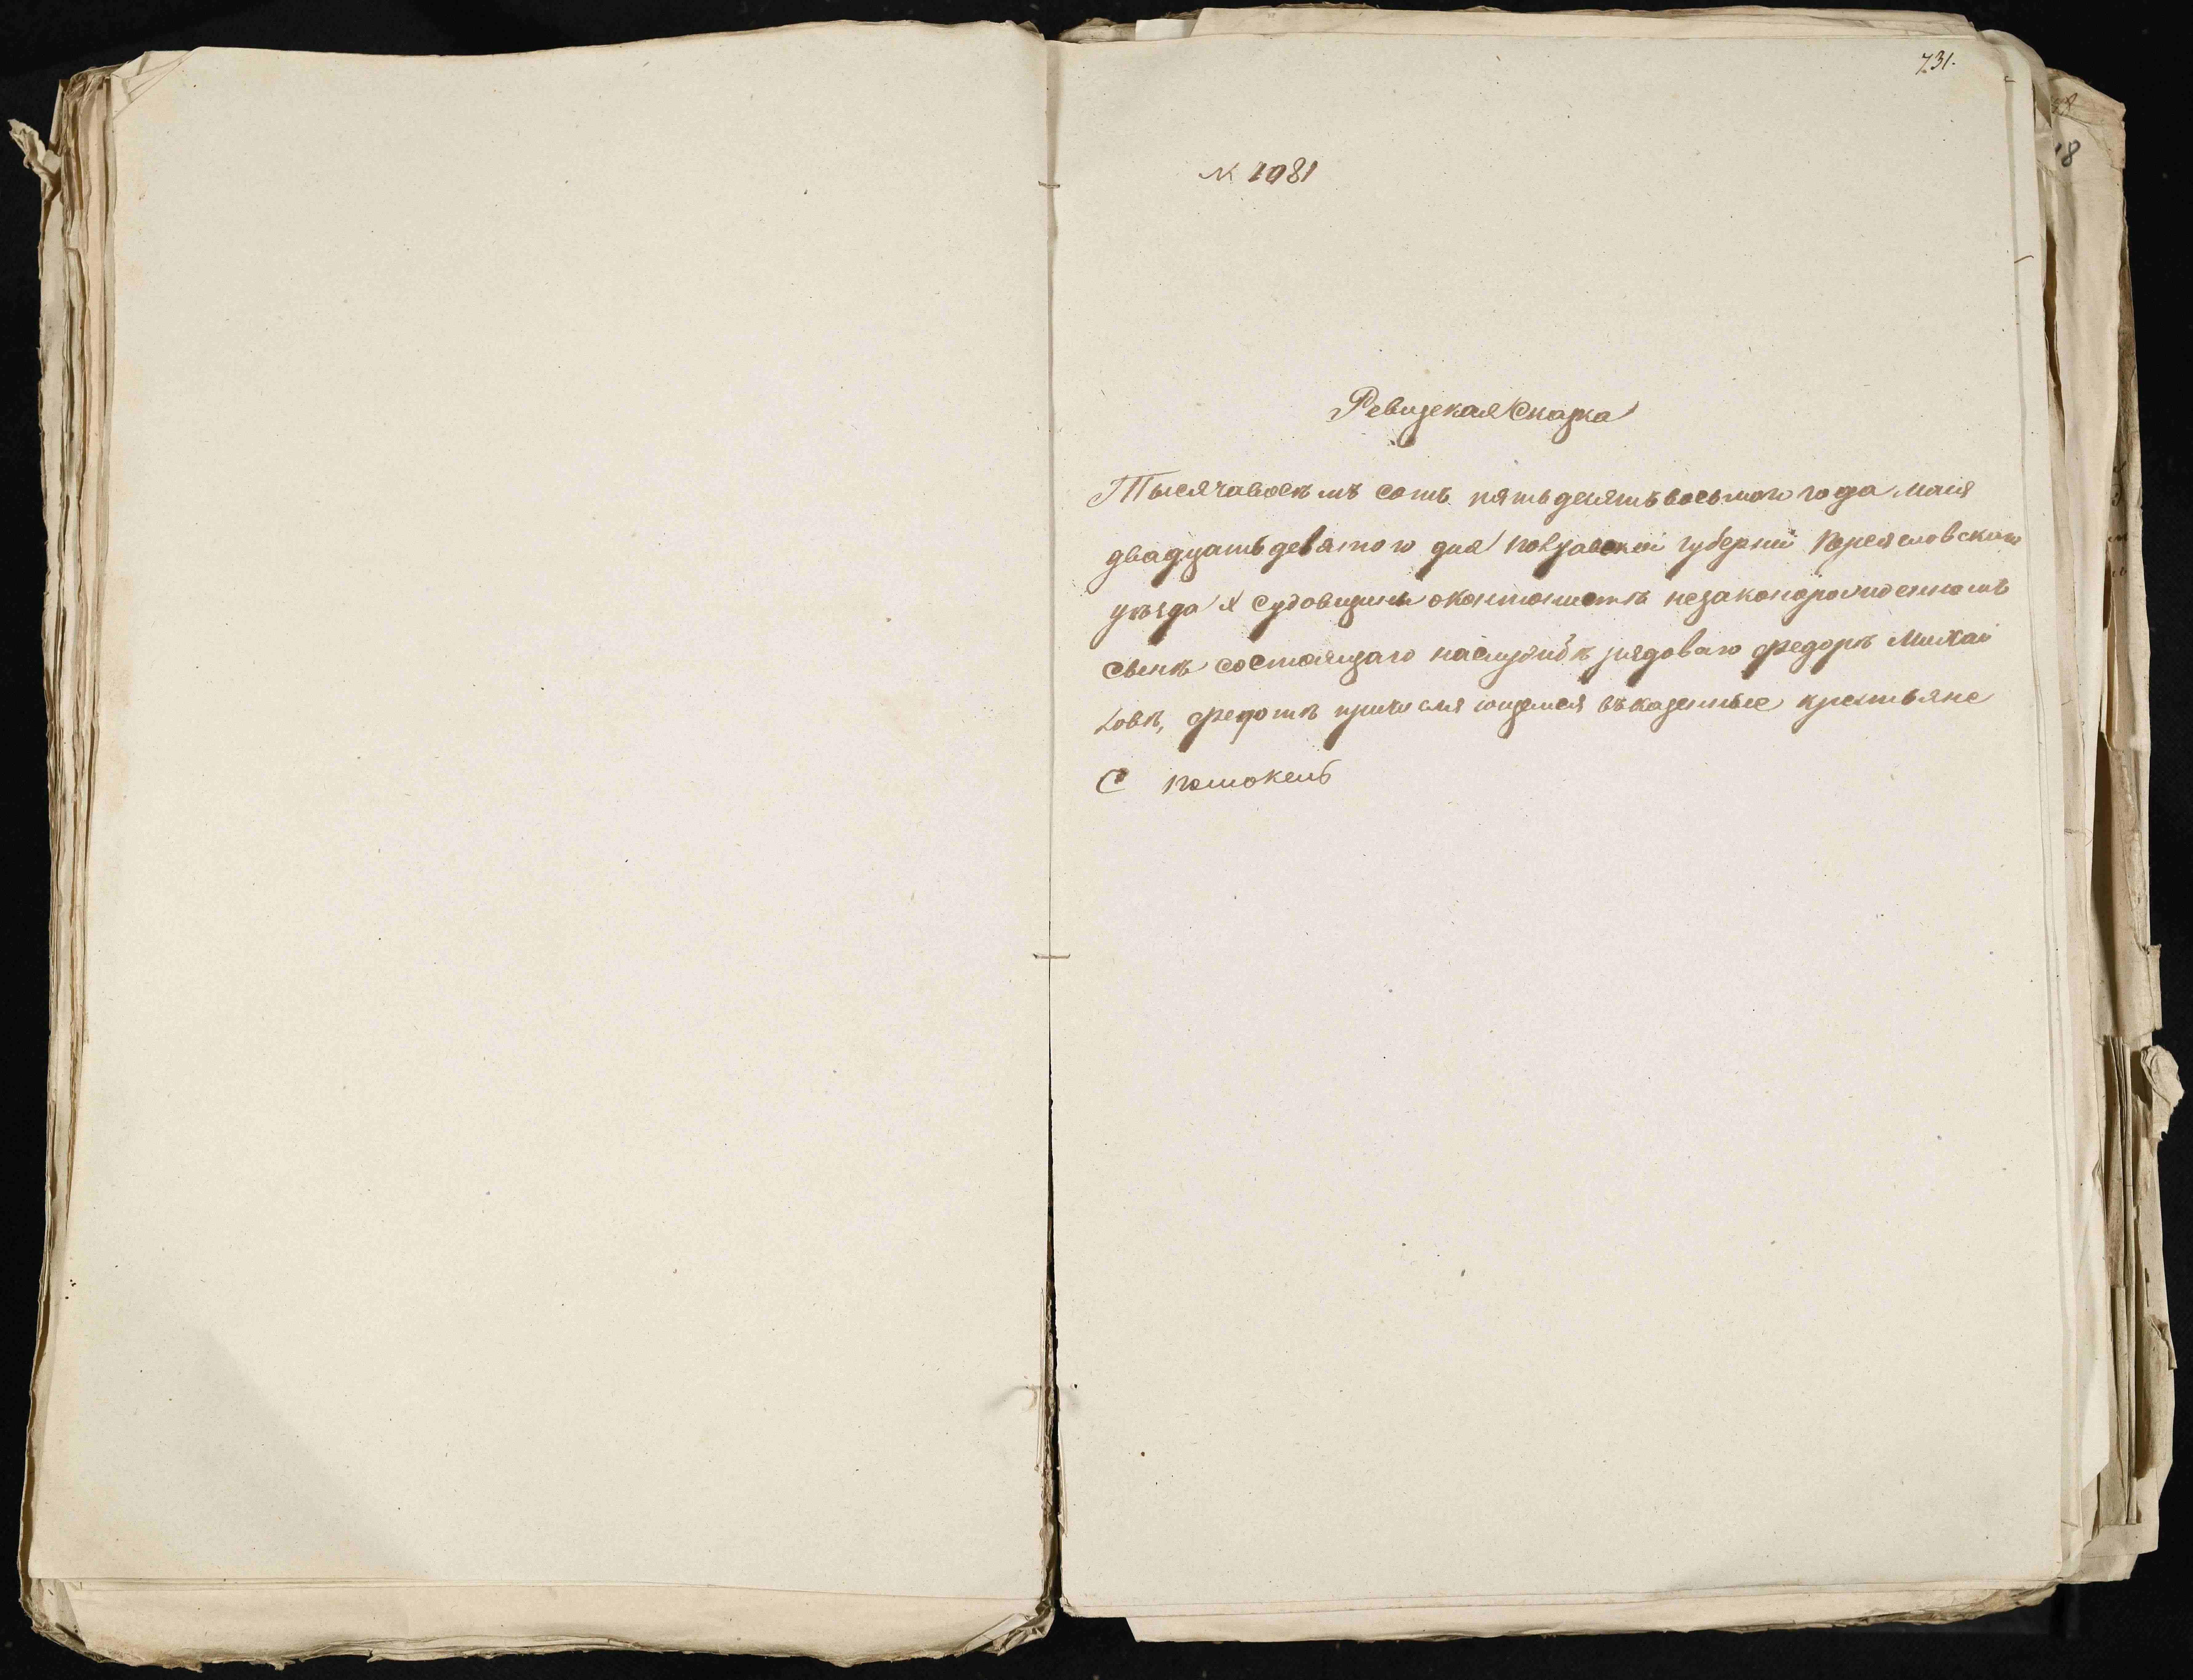 731.
№ 1081
Ревизская Сказка
Тысяча восѣмъ сотъ пятьдесятъ восьмого года маия
двадцать девятого дня Полтавской губернии Переясловского
уѣзда М Судовщины о незаконорожденномъ
сынѣ состоящаго наслужбѣ рядоваго Федорѣ Михай
ловѣ, Федотѣ причисляющемся въ казенные крестьяне
С